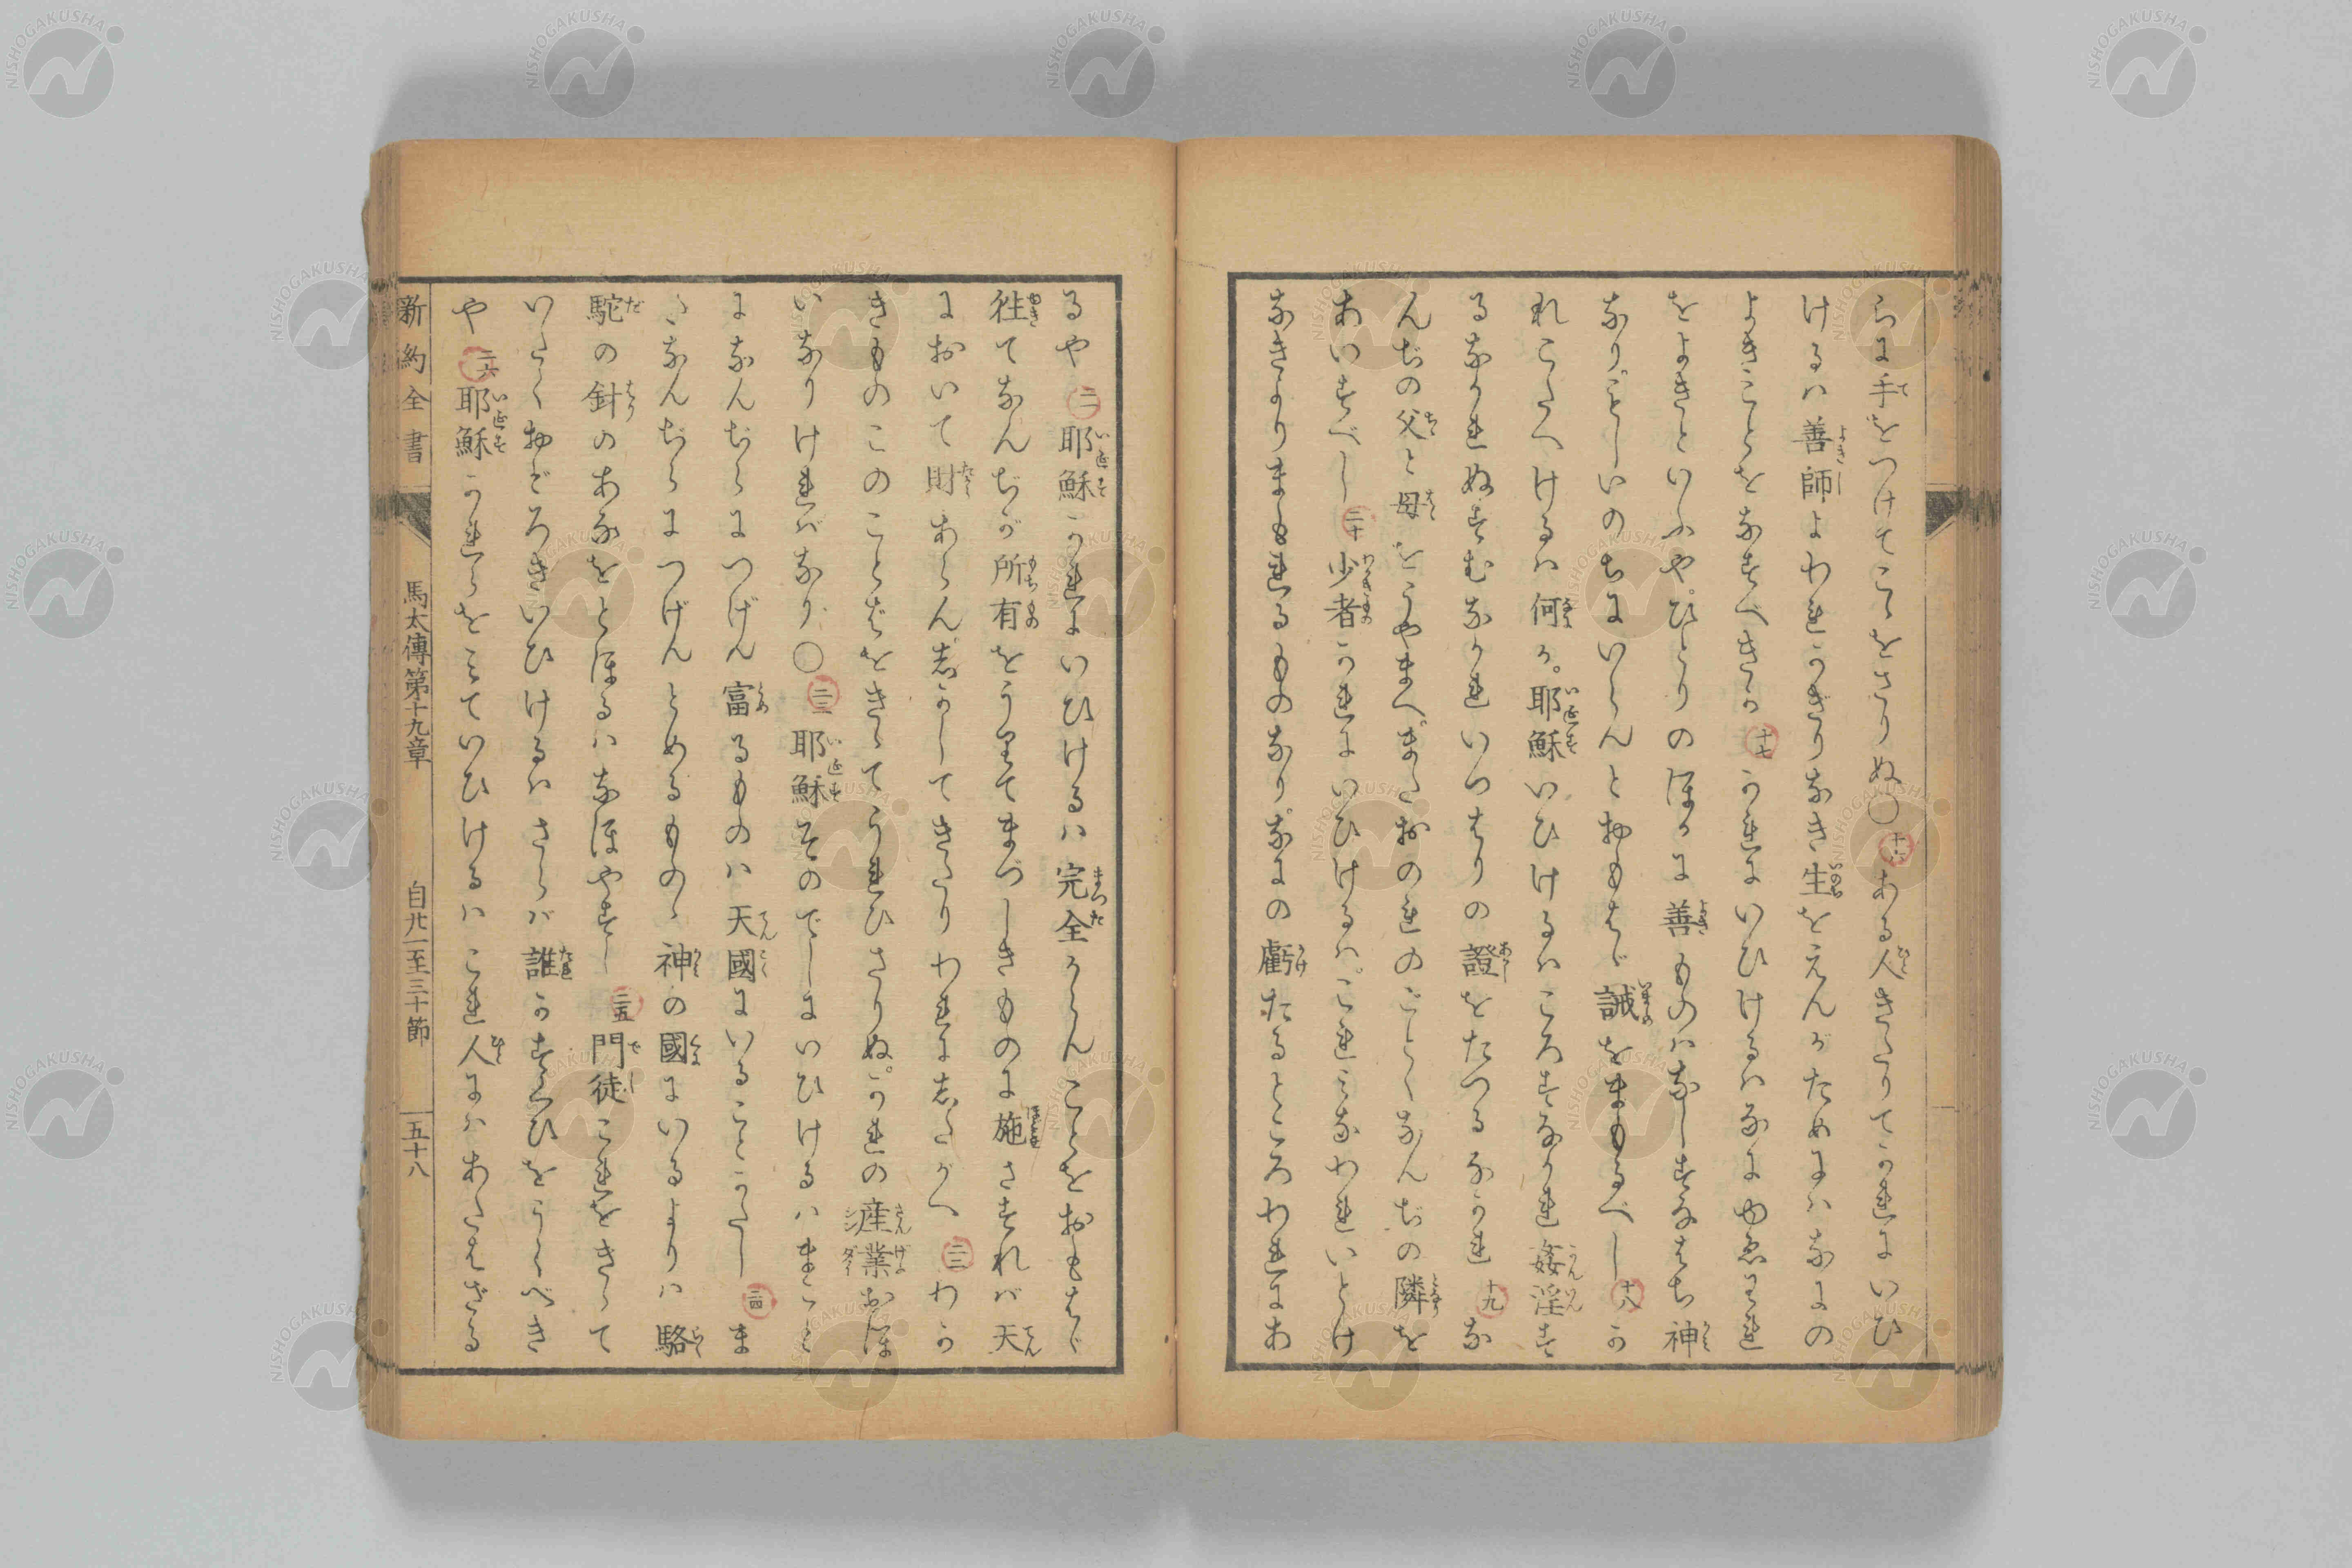 らに手をつけてこゝをさりぬ〇十六ある人きたりてかれにいひ
けるハ善師よわれかぎりなき生をえんがためにハなにの
よきことをなすべきか十七かれにいひけるハなにゆゑわれ
をよきといふや。ひとりのほかに善ものハなしすなはち神
なり。もしいのちにいらんとおもはゞ誡をまもるべし十八か
れこたへけるハ何か。耶穌いひけるハころすなかれ姦淫す
るなかれぬすむなかれいつはりの證をたつるなかれ十九な
んぢの父と母をうやまへ。またおのれのごとくなんぢの隣を
あいすべし二十少者かれにいひけるハ。これミなわれいとけ
なきよりまもれるものなり。なにの虧たるところわれにあ
るや二一耶穌かれにいひけるハ完全からんことをおもはゞ
往てなんぢが所有をうりてまづしきものに施さすれバ天
において財あらん。志かしてきたりわれに志たがへ二二わか
きものこのことばをきゝてうれひさりぬ。かれの産業おほ
いなりけれバなり〇二三耶穌そのでしにいひけるハまこと
になんぢらにつげん富るものハ天國にいることかたし二四ま
たなんぢらにつげんとめるものゝ神の國にいるよりハ駱
駝の針のあなをとほるハなほやすし二五門徒これをきゝて
いたくおどろきいひけるハさらバ誰かすくひをうくべき
や二六耶穌かれらをミていひけるハこれ人にハあたはざる
新約全書 馬太傳第十九章 自廾一至三十節 五十八